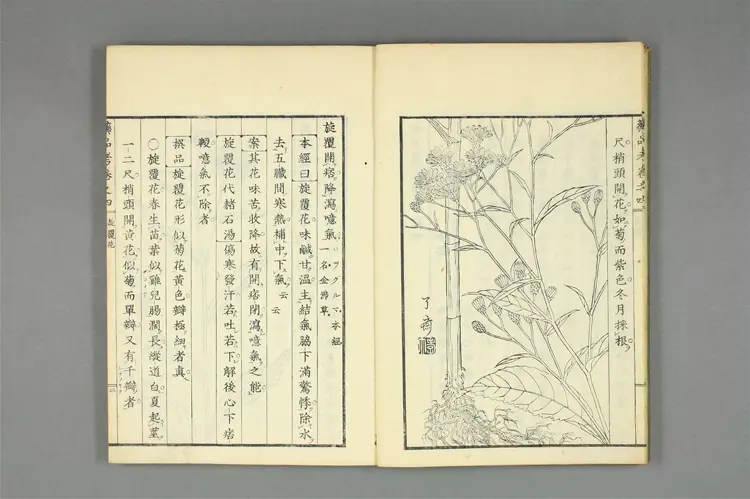 尺梢頭開花如菊而紫色冬月採根
了齋
旋覆開痞降瀉噫氣 一名金沸草 本經
本經曰旋覆花味鹹甘溫主結氣脇下滿驚悸除水
去五臟間寒熱補中下氣云云
案其花味苦收降故有開痞閉瀉噫氣之能
旋覆花代赭石湯傷寒發汗若吐若下解後心下痞
鞕噫氣不除者
撰品旋覆花形似菊花黃色瓣極細者真
〇旋覆花春生苗葉似雞兒腸濶長縱道白夏起莖
一二尺梢頭開黃花似菊而單瓣又有千瓣者
藥品考卷之四 旋覆花